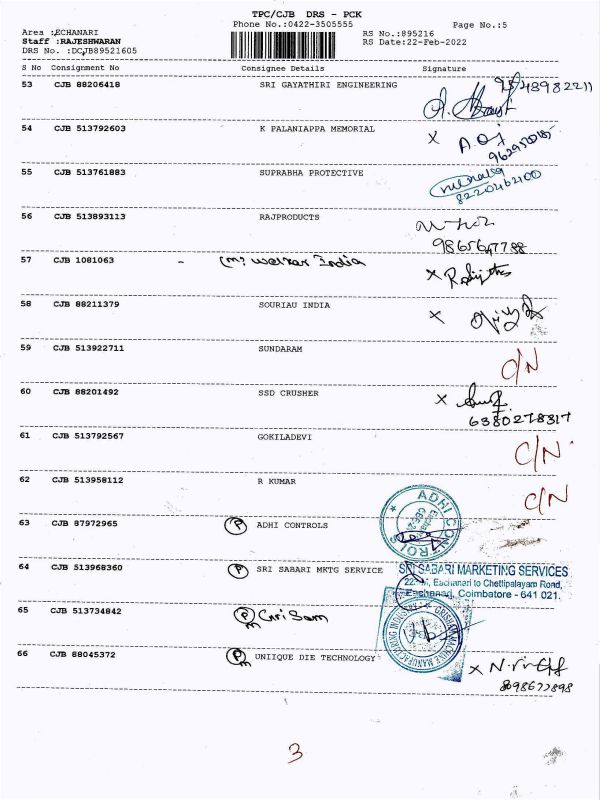 TPC/CJB DRS - PCK
Phone No.:0422-3505555
Page No.:5
Area :ECHANARI
RS No.:895216
Staff :RAJESHWARAN
RS Date:22-Feb-2022
DRS No. :DCJB89521605
S No Consignment No Consignee Details Signature
53 CJB 88206418 SRI GAYATHIRI ENGINEERING
54 CJB 513792603 K PALANIAPPA MEMORIAL X
55 CJB 513761883 SUPRABHA PROTECTIVE
8220462400
56 CJB 513893113 RAJPRODUCTS
57 CJB 1081063 - India X
58 CJB 88211379 SOURIAU INDIA X
59 CJB 513922711 SUNDARAM C/N
60 CJB 88201492 SSD CRUSHER X
6380278317
61 CJB 513792567 GOKILADEVI C/N
62 CJB 513958112 R KUMAR C/N
63 CJB 87972965 P ADHI CONTROLS
ADHI CONTROLS
64 CJB 513968360 P SRI SABARI MKTG SERVICE
SRI SABARI MARKETING SERVICES
Eachanari to Chettipalayam Road,
Eachanari, Coimbatore - 641 021.
65 CJB 513734842 P
66 CJB 88045372 P UNIIQUE DIE TECHNOLOGY X
3